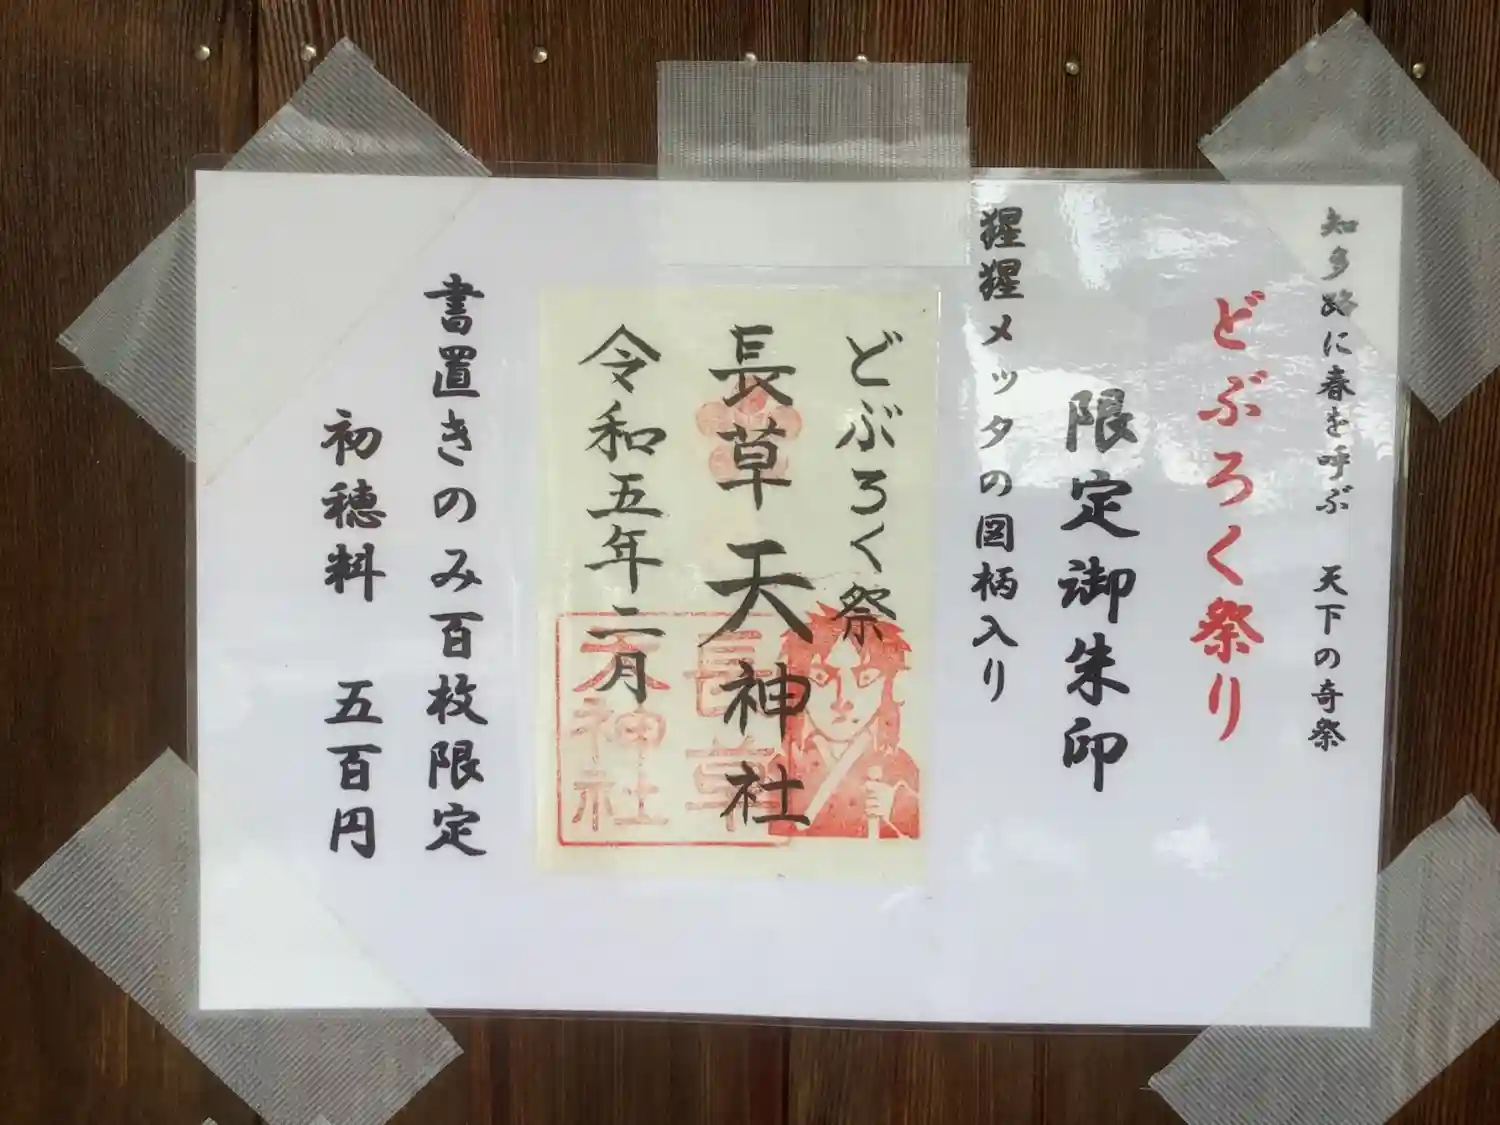 知多路に春を呼ぶ　天下の奇祭
どぶろく祭り
限定御朱印
猩猩メッタの図柄入り
どぶろく祭
長草天神社
令和五年二月
長草
天神社
書置きのみ百枚限定
初穂料　五百円